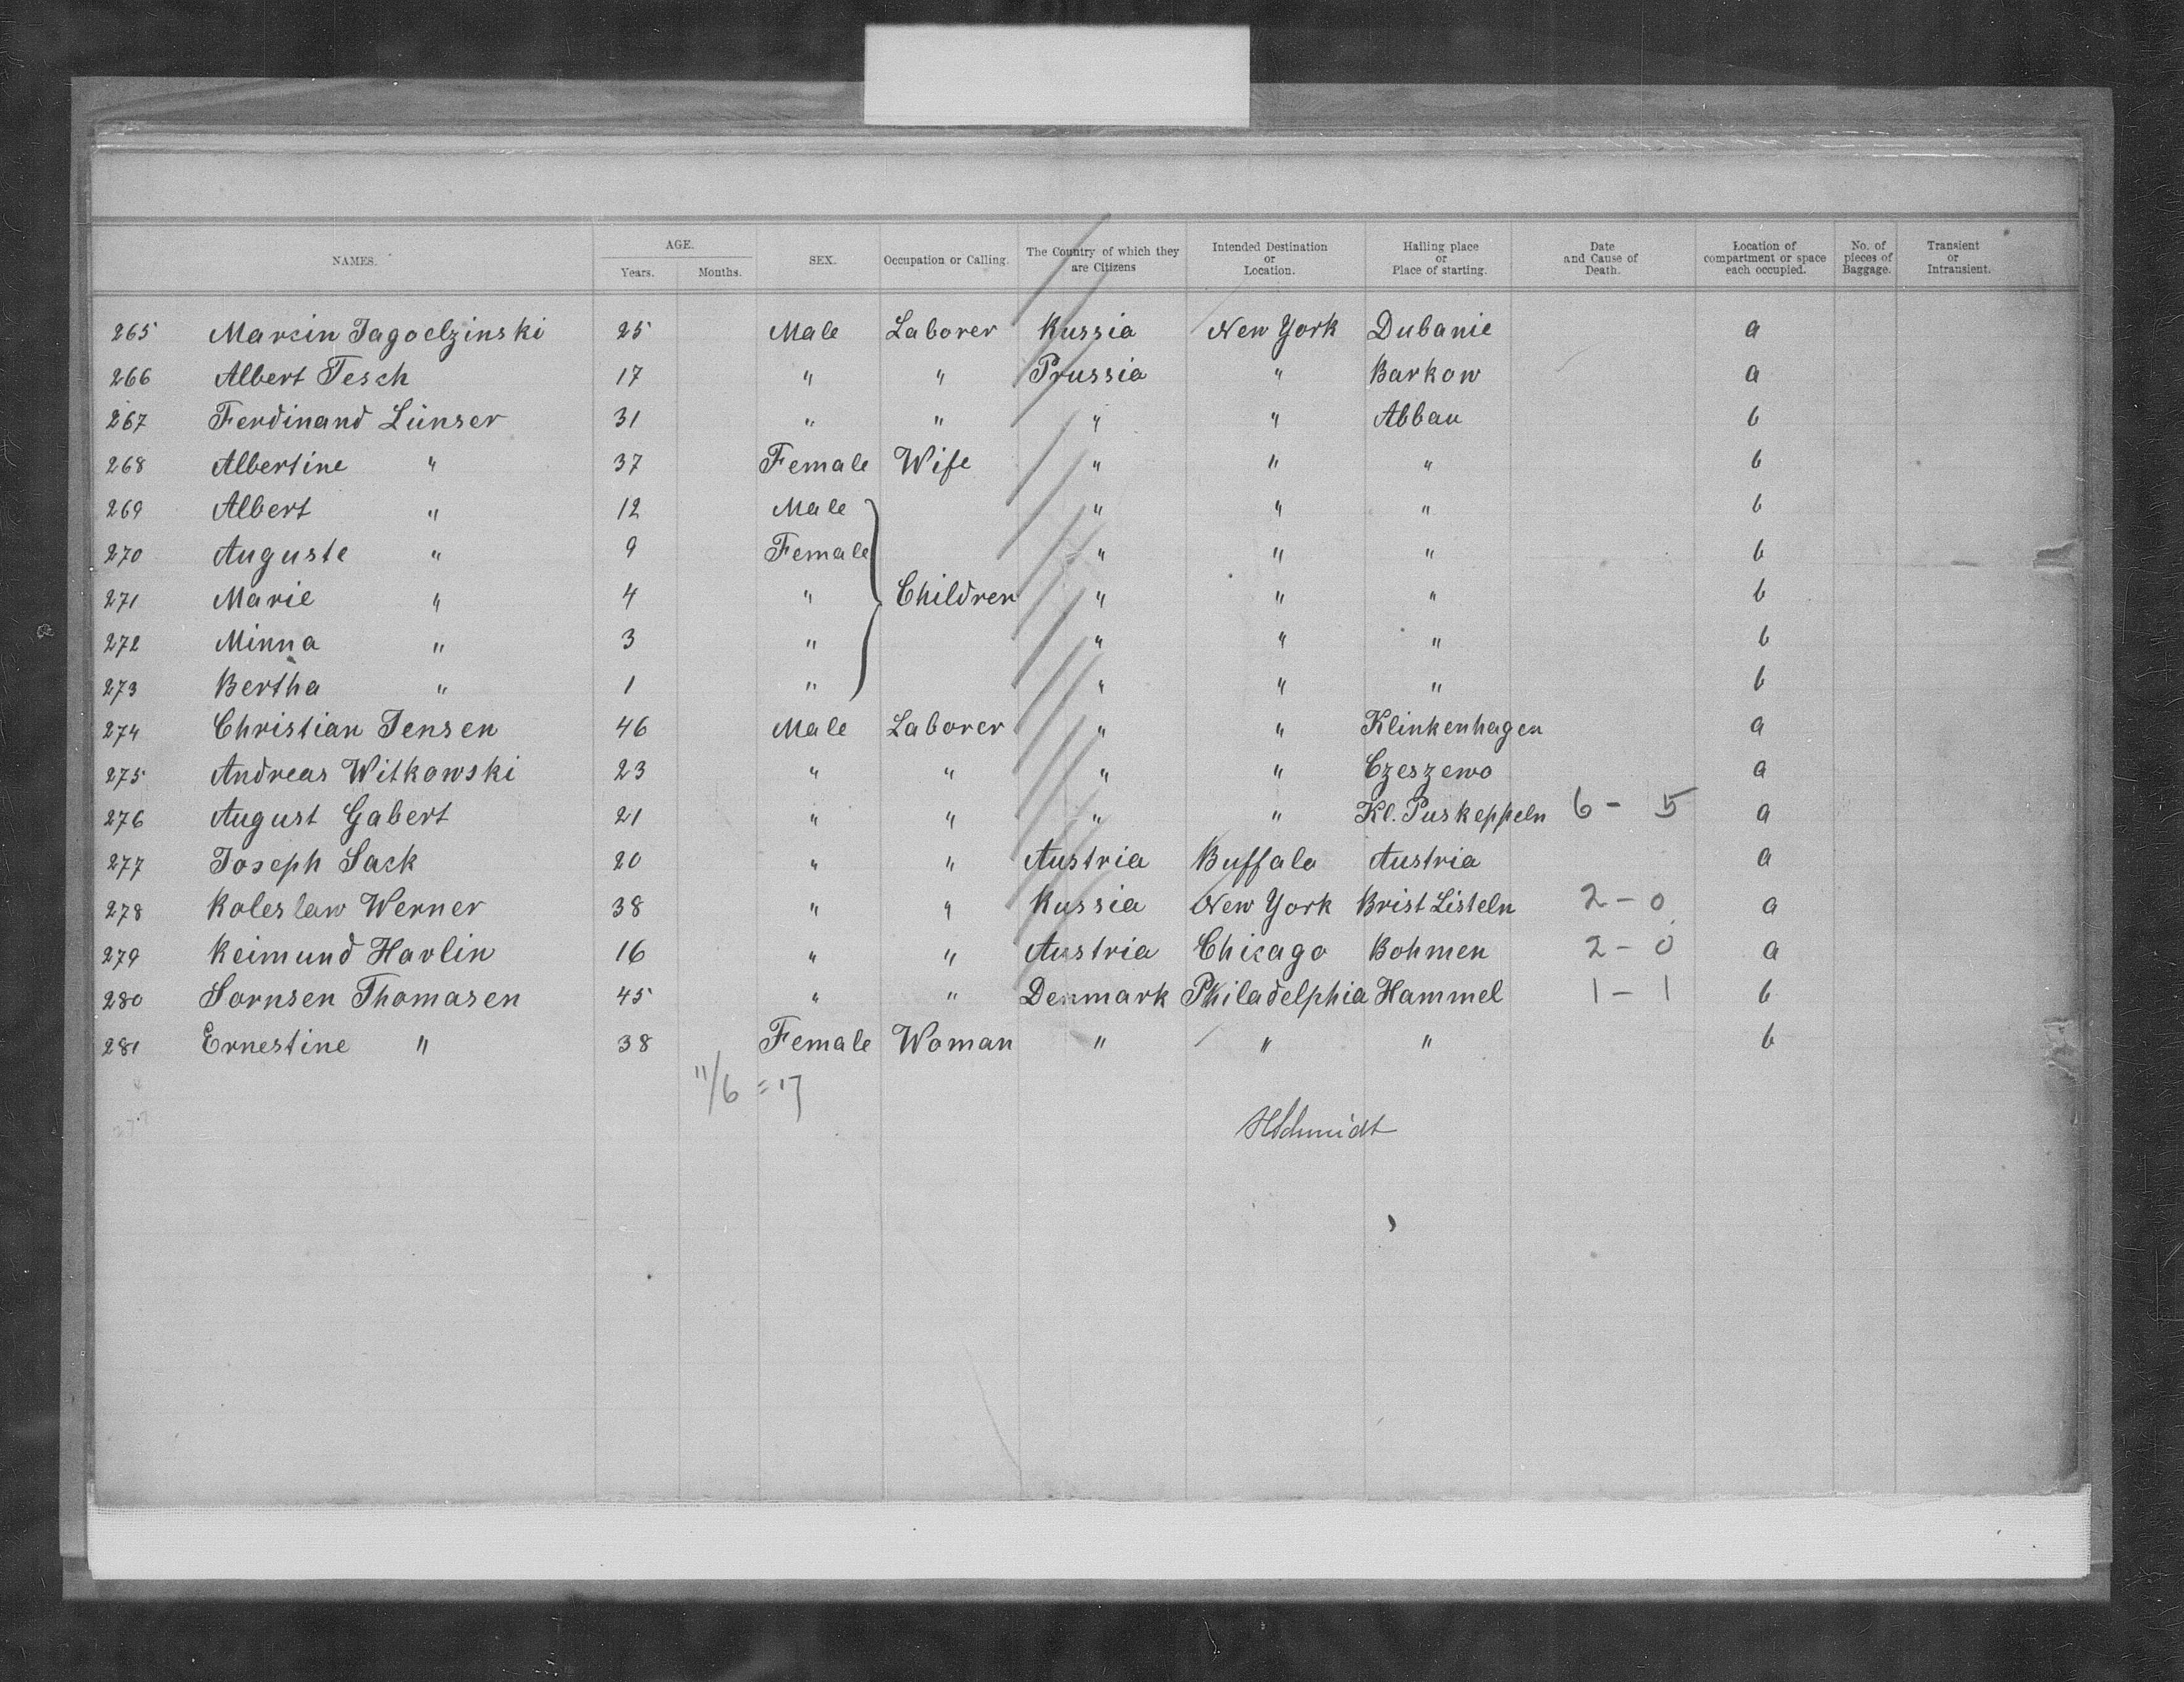 NAMES. AGE. Years. Months. SEX. Occupation or Calling. The Country of which they are Citizens Intended Destination or Location. Hailing place or Place of starting. Date and Cause of Death. Location of compartment or space each occupied. No. of pieces of Baggage. Transient or Intransient.
265 Marcin Jagoelzinski 25 Male Laborer Russia New York Dubanie a
266 Albert Tesch 17 " " Prussia " Barkow a
267 Ferdinand Lünser 31 " " " " Abbau b
268 Albertine " 37 Female Wife " " " b
269 Albert " 12 Male " " " b
270 Auguste " 9 Female " " " b
271 Marie " 4 " Children " " " b
272 Minna " 3 " " " " b
273 Bertha " 1 " " " " b
274 Christian Jensen 46 Male Laborer " " Klinkenhagen a
275 Andreas Witkowski 23 " " " " Czeszewo a
276 August Gabert 21 " " " " Kl. Puskeppeln 6 - 5 a
277 Joseph Sack 20 " " Austria Buffalo Austria a
278 Boleslaw Werner 38 " " Russia New York Brist Listeln 2 - 0 a
279 Reimund Havlin 16 " " Austria Chicago Bohmen 2 - 0 a
280 Sornsen Thomasen 45 " " Denmark Philadelphia Hammel 1 - 1 b
281 Ernestine " 38 Female Woman " " " b
11/6 = 17
HSchmidt